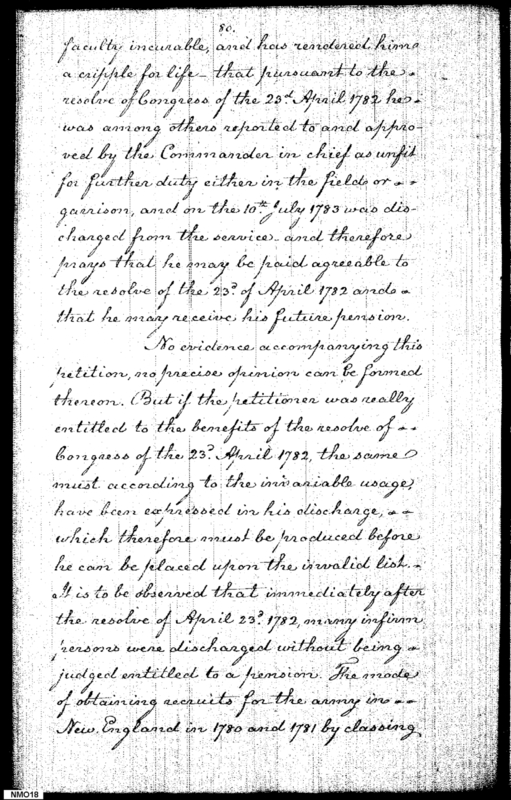 80.
faculty incurable, and has rendered him
a cripple for life – that pursuant to the
resolve of Congress of the 23d April 1782 he
was among others reported to and appro-
ved by the Commander in chief as unfit
for further duty either in the field or
garrison, and on the 10th July 1783 was dis-
charged from the service – and therefore
prays that he may be paid agreeable to
the resolve of the 23d of April 1782 and
that he may receive his future pension.
No evidence accompanying this
petition, no precise opinion can be formed
thereon. But if the petitioner was really
entitled to the benefits of the resolve of
Congress of the 23d April 1782, the same
must according to the invariable usage,
have been expressed in his discharge,
which therefore must be produced before
he can be placed upon the invalid list.
It is to be observed that immediately after
the resolve of April 23d 1782, many infirm
persons were discharged without being
judged entitled to a pension. The mode
of obtaining recruits for the army in
New England in 1780 and 1781 by classing
NMO18